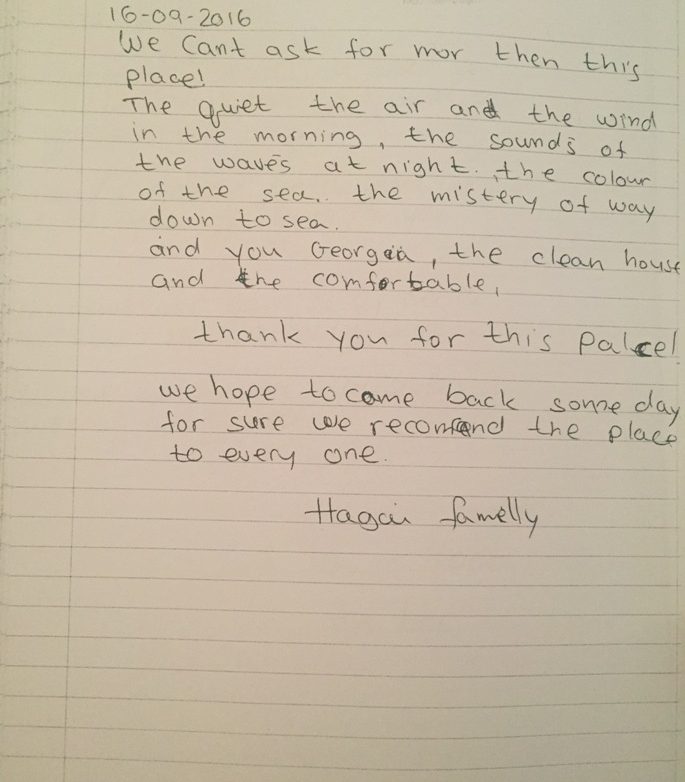 16-09-2016
We Cant ask for mor then this
place!
The quiet the air and the wind
in the morning, the sounds of
the waves at night. , the colour
of the sea.. the mistery of way
down to sea.
and you Georgia, the clean house
and the comfortable,
thank you for this Palce!
we hope to came back some day
for sure we recomend the place
to every one.
Hagai famelly